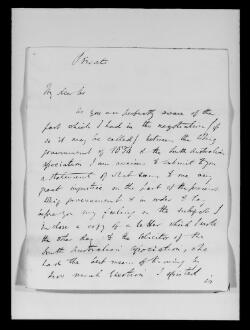 Private
My dear Sir
As you are perfectly aware of the
part which I had in the negotiation (if
so it may be called) between the Whig
government of 1834 & the South Australian
Association I am anxious to submit to you
a statement of what seems to me very
great injustice on the part of the present
Whig government & in order to
my feelings on the subject I
enclose a copy of a letter which I wrote
the other day to the Solicitor of the
South Australian Association, who
had the best means of knowing
how much exertion I
in